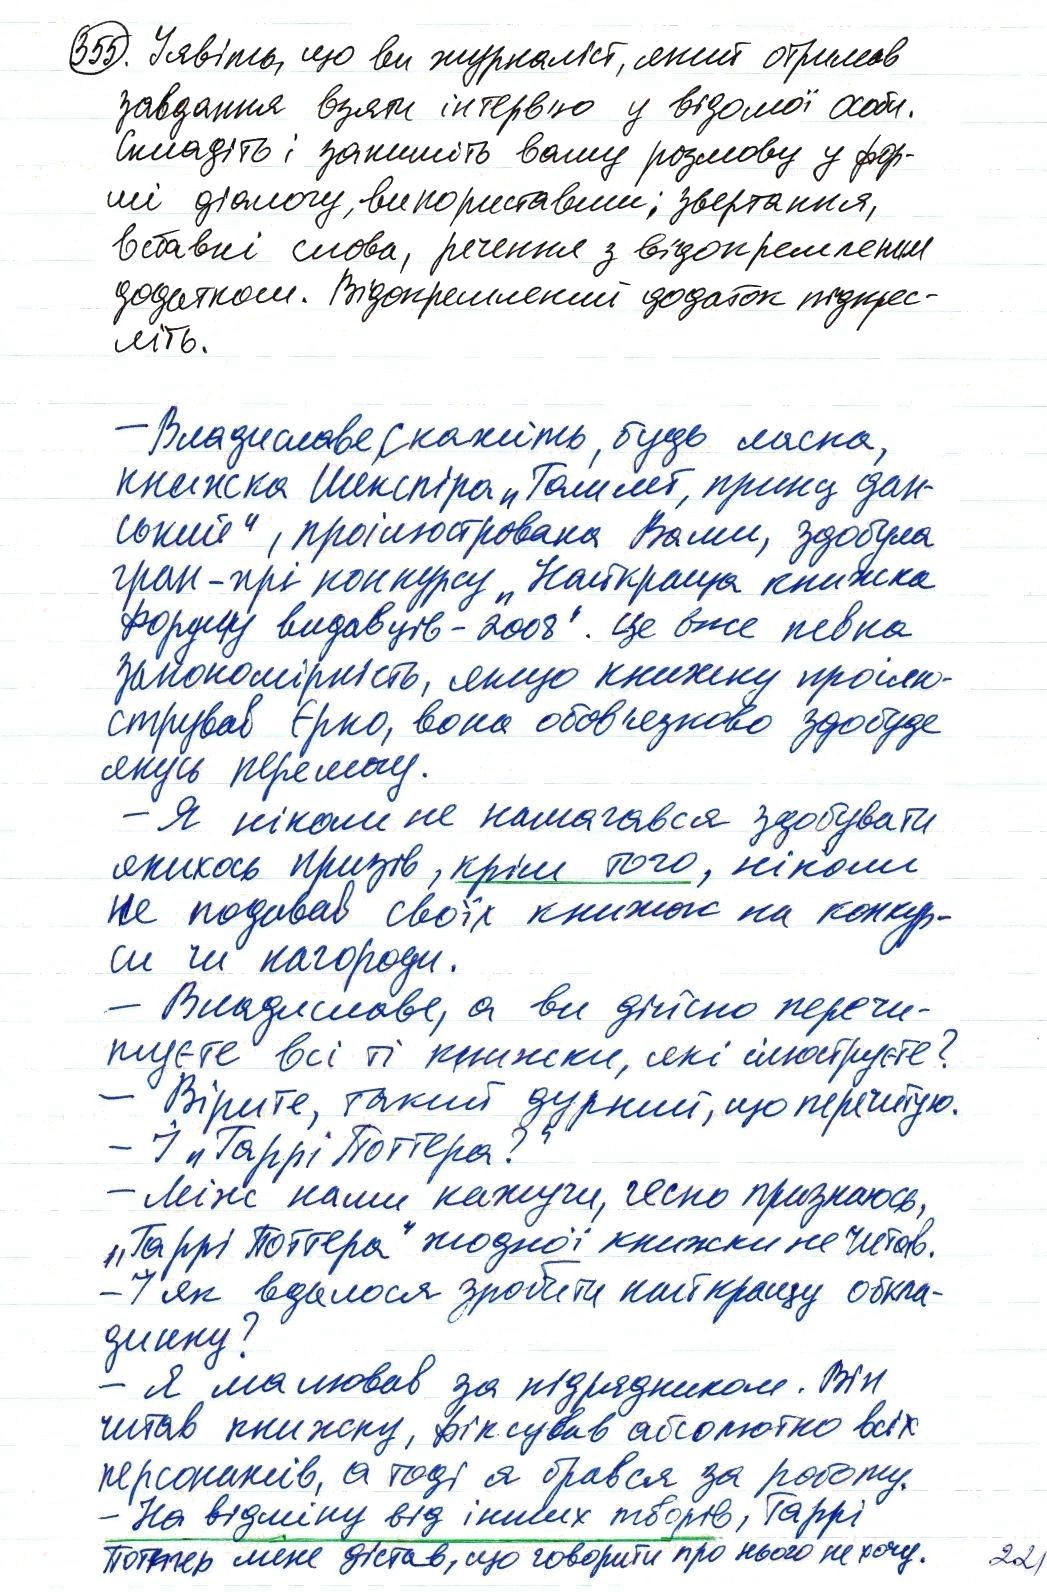 355. Уявіть, що ви журналіст, який отримав
завдання взяти інтерв'ю у відомої особи.
Складіть і запишіть вашу розмову у фор-
мі діалогу, використавши; звертання,
вставні слова, речення з відокремленим
додатком. Відокремлений додаток підкрес-
літь.
– Владиславе, скажіть, будь ласка,
книжка Шекспіра „Гамлет, принц дан-
ський", проілюстрована Вами, здобула
гран-прі конкурсу „Найкраща книжка
Форуму видавців – 2008". Це вже певна
закономірність, якщо книжку проілю-
стрував Єрко, вона обов'язково здобуде
якусь перемогу.
– Я ніколи не намагався здобувати
якихось призів, крім того, ніколи
не подавав своїх книжок на конкур-
си чи нагороди.
– Владиславе, а ви дійсно перечи-
туєте всі ті книжки, які ілюструєте?
– Вірите, такий дурний, що перечитую.
– І „Гаррі Поттера?"
– Між нами кажучи, чесно признаюсь,
„Гаррі Поттера" жодної книжки не читав.
– І як вдалося зробити найкращу обкла-
динку?
– Я малював за підрядником. Він
читав книжку, фіксував абсолютно всіх
персонажів, а тоді я брався за роботу.
– На відміну від інших творів, Гаррі
Поттер мене дістав, що говорити про нього не хочу. 221